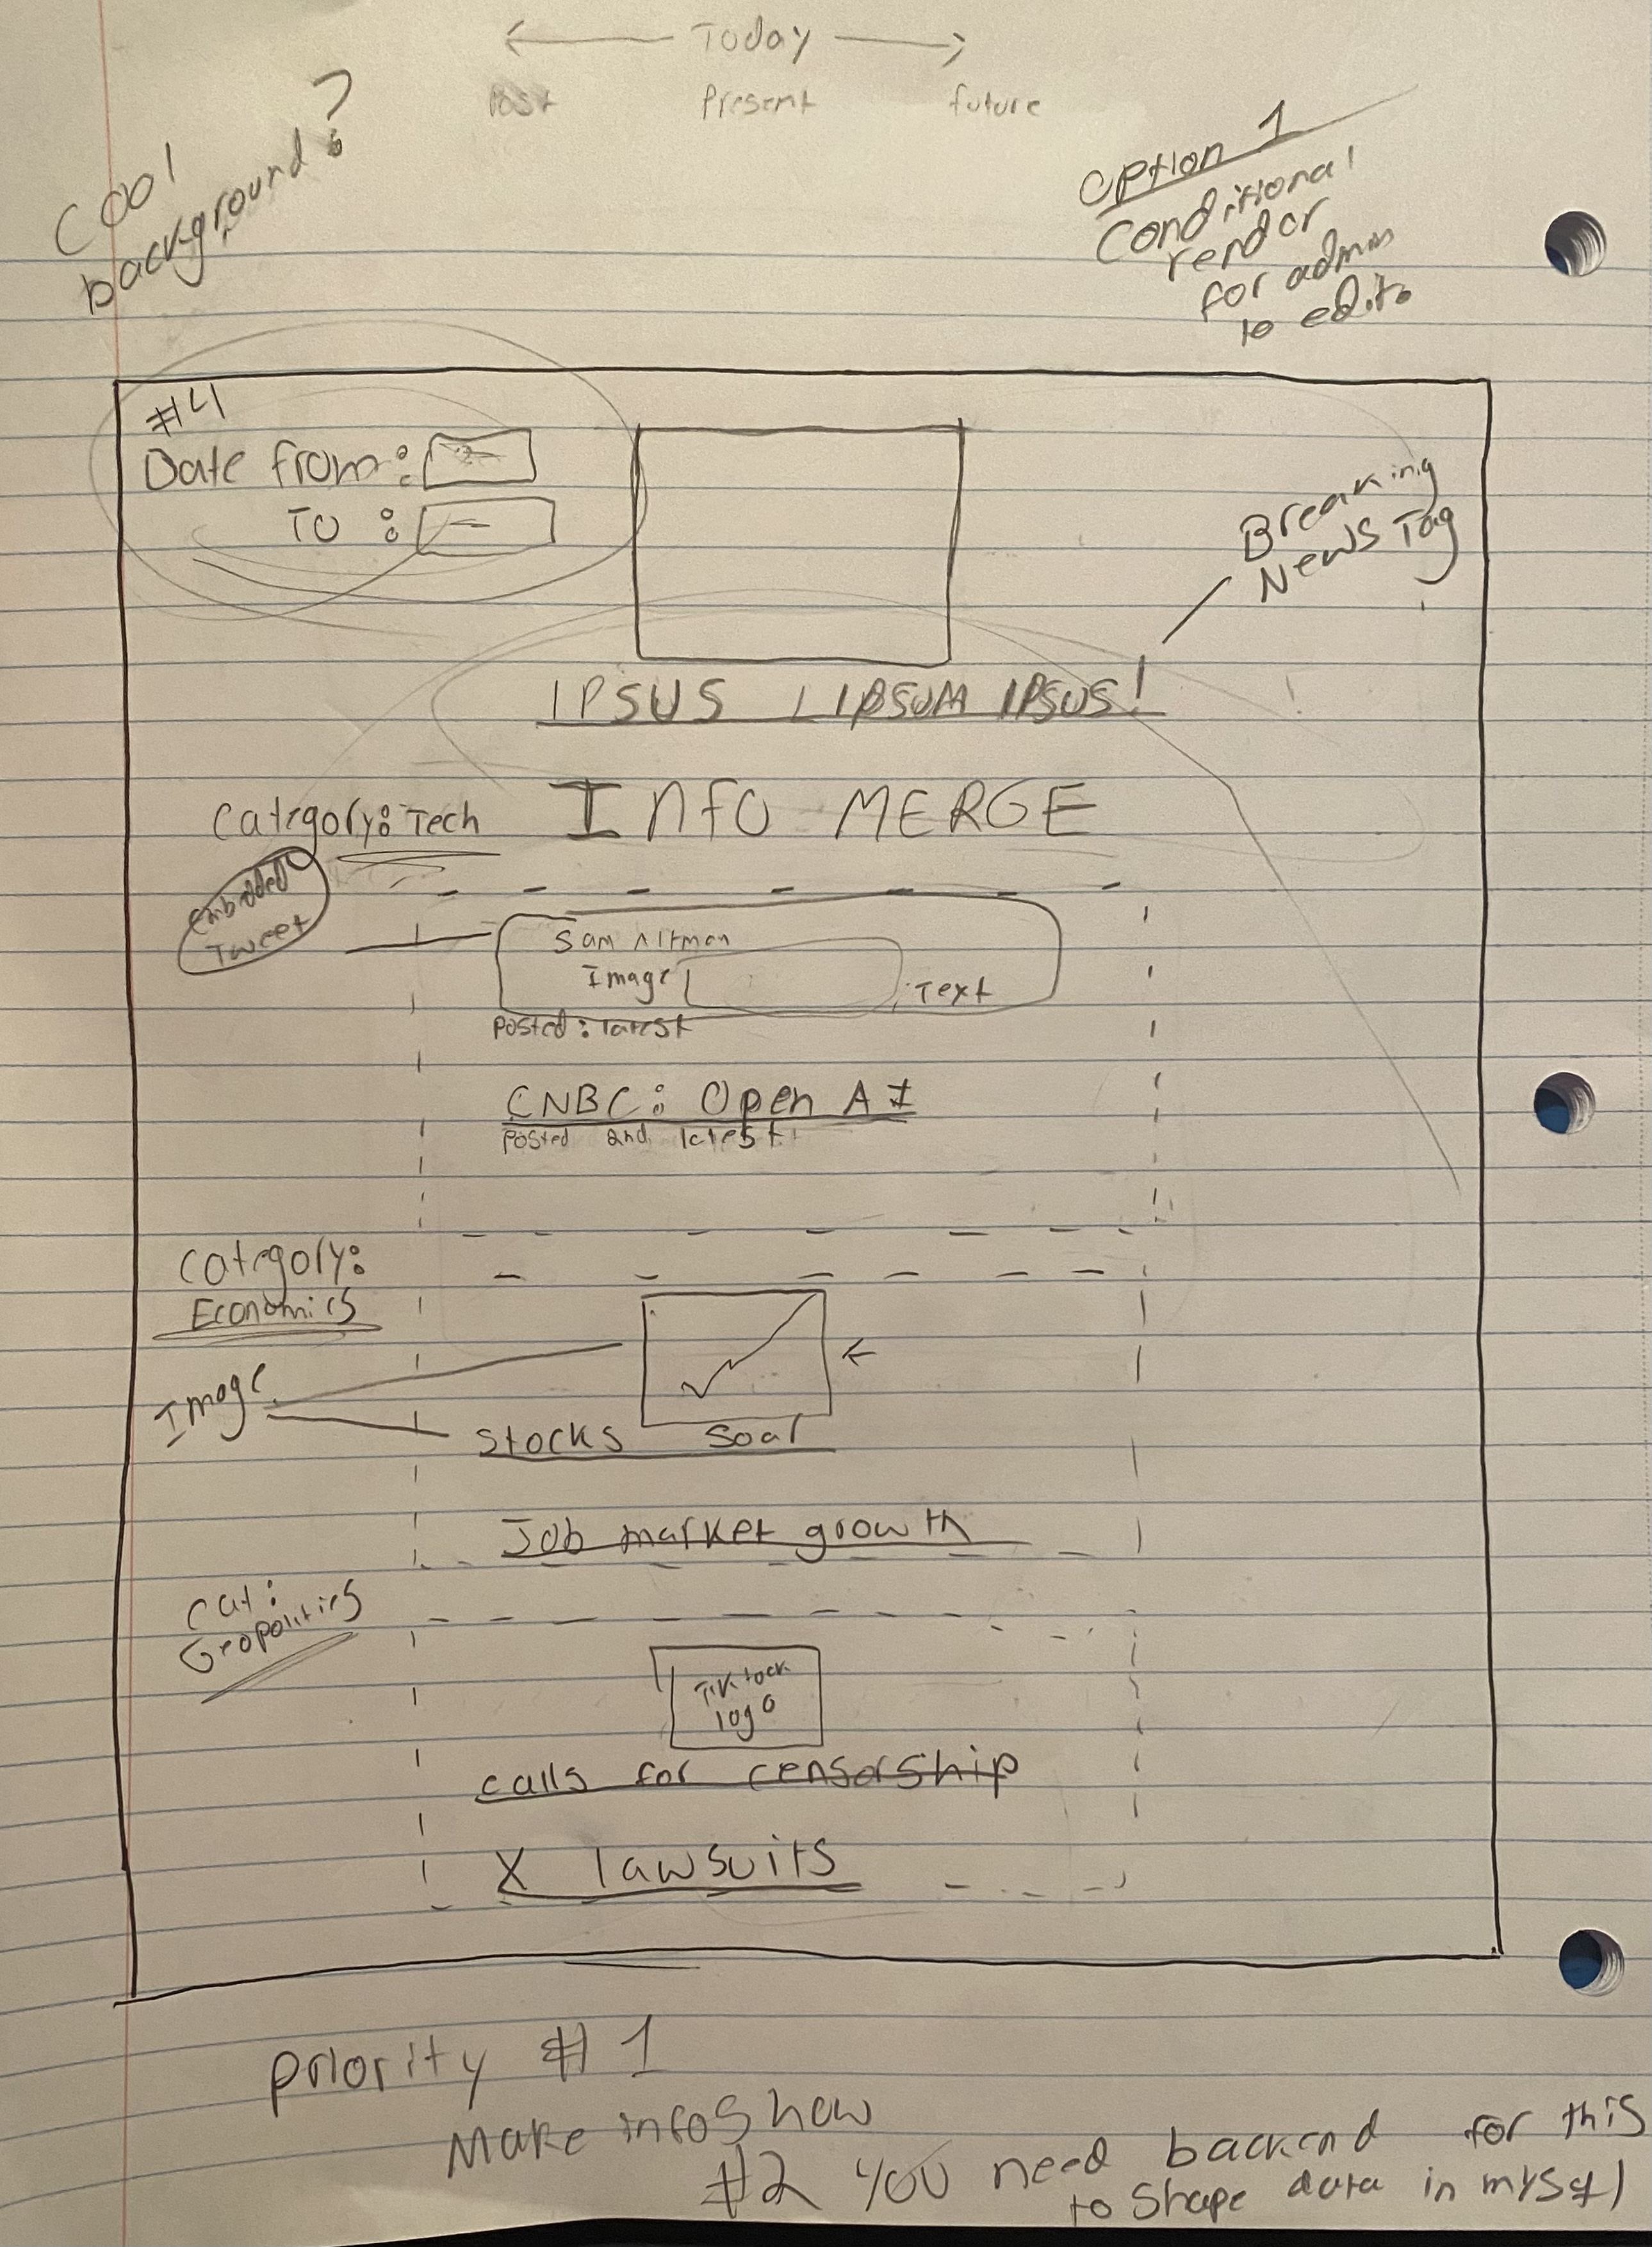 Today
Past Present future
Cool
background?
Option 1
Conditional
rendor
for admin
to edit.
#4
Date from:
TO :
Breaking
News Tag
IPSUS LIPSUM IPSUS!
INFO MERGE
Category: Tech
Embedded
Tweet
Sam Altman
Image Text
Posted: latest
CNBC: Open AI
posted and latest
Category:
Economics
Image
Stocks Soar
Job market growth
Cat:
Geopolitics
Tiktock
logo
calls for censorship
X lawsuits
priority #1
Make info show
#2 you need backend for this
to shape data in mysql